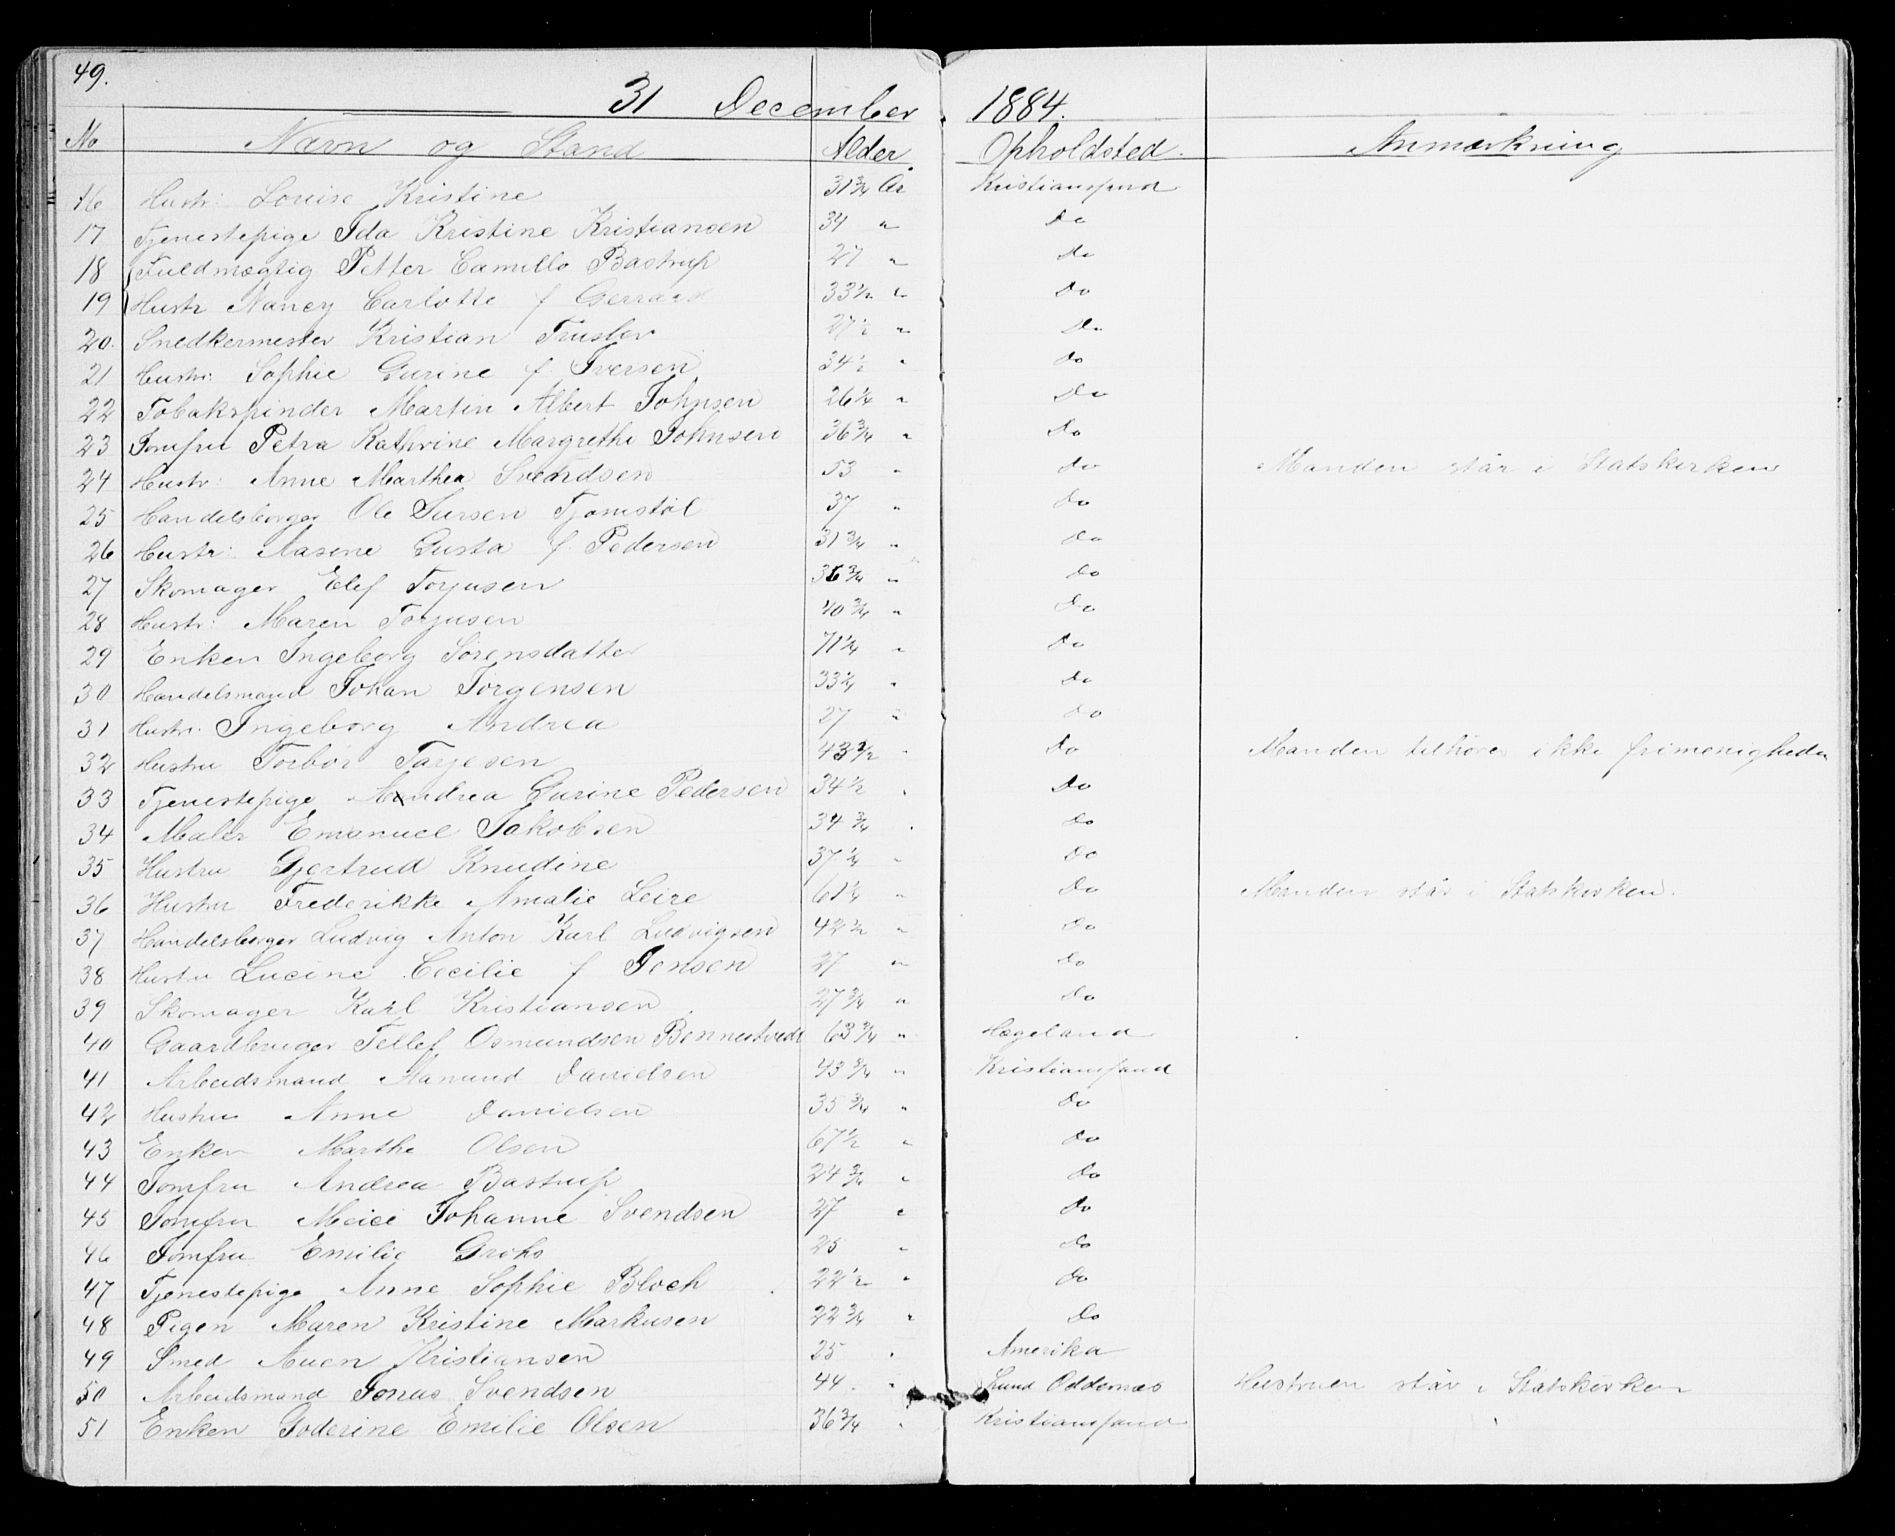 49.
31 December 1884.
No Navn og Stand Alder Opholdsted. Anmærkning
16 Hustr: Louise Kristine 31 3/4 År Kristianssand
17 Tjenestepige Ida Kristine Kristiansen 34 " Do
18 Fuldmægtig Petter Camillo Bastrup 27 " Do
19 Hustr Nancy Carlotte f Gerrard 33 1/2 " Do
20. Snedkermester Kristian Truslov 27 1/2 " Do
21 Hustr: Sophie Gurine f Iversen 34 1/2 " Do
22 Tobakspinder Martin Albert Johnsen 26 1/4 " Do
23 Jomfru Petra Kathrine Margrethe Johnsen 36 3/4 " Do
24 Hustr: Anne Marthea Svendsen 53 " Do Manden står i Statskirken
25 Handelsborger Ole Larsen Tjomstöl 37 " Do
26 Hustr: Aasene Gusta f. Pedersen 31 3/4 " Do
27 Skomager Elef Torjusen 36 3/4 " Do
28 Hustr: Maren Torjusen 40 3/4 " Do
29 Enken Ingeborg Sörensdatter 71 1/4 " Do
30 Handelsmand Johan Jörgensen 33 1/4 " Do
31 Hustr: Ingeborg Andrea 27 " Do
32 Hustru Torbör Tarjesen 43 1/2 " Do Manden tilhører ikke frimenigheden
33 Tjenestepige Andrea Gurine Pedersen 34 1/2 " Do
34 Maler Emanuel Jakobsen 34 3/4 " Do
35 Hustru Gjertrud Knudine 37 1/4 " Do
36 Hustru Frederikke Amalie Leire 61 1/4 " Do Manden står i Statskirken.
37 Handelsborger Ludvig Anton Karl Ludvigsen 42 1/2 " Do
38 Hustru Lucine Cecilie f Jensen 27 " Do
39 Skomager Karl Kristiansen 27 3/4 " Do
40 Gaardbruger Tellef Osmundsen Bennestvedt 63 3/4 " Hægeland
41 Arbeidsmand Aanund Danielsen 43 3/4 " Kristianssand
42 Hustru Anne Danielsen 35 3/4 " Do
43 Enken Marthe Olsen 67 1/2 " Do
44 Jomfru Andrea Bastrup 24 3/4 " Do
45 Jomfru Johanne Svendsen 27 " Do
46 Jomfru Emilie Grohs 25 " Do
47 Tjenestepige Anne Sophie Bloch 22 1/2 " Do
48 Pigen Maren Kristine Markusen 22 3/4 " Do
49 Smed Auen Kristiansen 25 " Amerika
50 Arbeidsmand Jonas Svendsen 44. " Lund Oddernæs Hustruen står i Statskirken
51 Enken Goderine Emilie Olsen 36 3/4 " Kristianssand